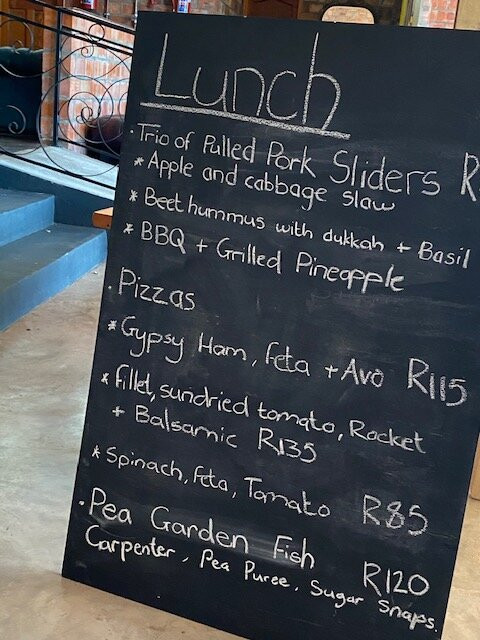 Lunch
· Trio of Pulled Pork Sliders R
* Apple and cabbage slaw
* Beet hummus with dukkah + Basil
* BBQ + Grilled Pineapple
· Pizzas
* Gypsy Ham, feta + Avo R115
* Fillet, sundried tomato, Rocket
+ Balsamic R135
* Spinach, feta, Tomato R85
· Pea Garden Fish R120
Carpenter, Pea Puree, Sugar Snaps.